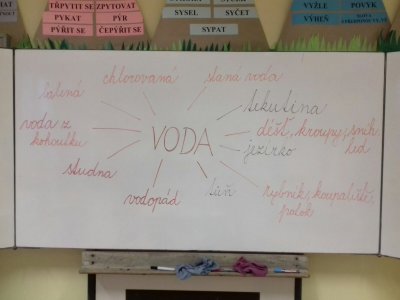 TŘPYTIT SE
PYKAT
PÝŘIT SE
ZPYTOVAT
PÝR
ČEPÝŘIT SE
SYSEL
SYČET
SYPAT
VYŽLE
POVYK
VÝHEŇ
chlorovaná
slaná voda
tekutina
voda z
kohoutku
VODA
déšť, kroupy, sníh
led
jezírko
studna
vodopád
rybník, koupaliště,
potok